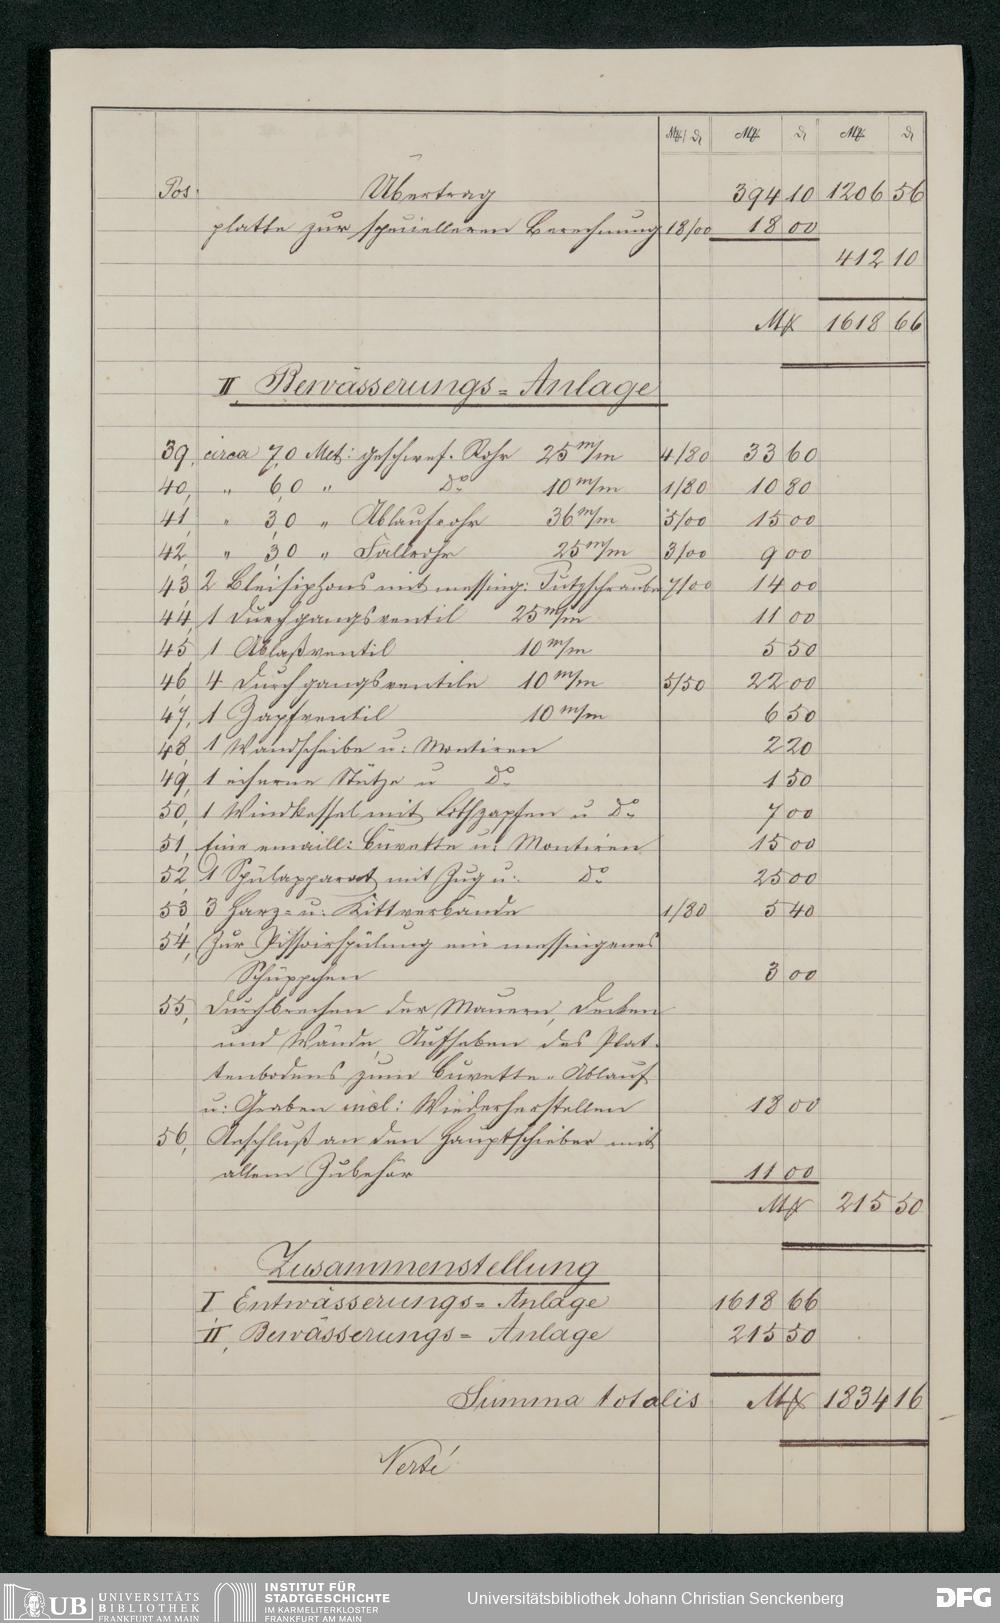 Mk ₰ Mk ₰ Mk ₰
Pos: Übertrag 394 10 1206 56
platte zur speciellen Berechnung 18/00 18 00
412 10
Mk 1618 66
II, Bewässerungs=Anlage
39, circa 7,0 Met: geschwef. Rohr 25 m/m 4/80 33 60
40, " 6,0 " Do 10 m/m 1/80 10 80
41, " 3,0 " Ablaufrohr 36 m/m 5/00 15 00
42, " 3,0 " Fallrohr 25 m/m 3/00 9 00
43, 2 Bleisiphons mit messing: Putzschraube 7/00 14 00
44, 1 Durchgangsventil 25 m/m 11 00
45, 1 Ablaßventil 10 m/m 5 50
46, 4 Durchgangsventile 10 m/m 5/50 22 00
47, 1 Zapfventil 10 m/m 6 50
48, 1 Wandscheibe u: Montiren 2 20
49, 1 eiserne Stütze u Do 1 50
50, 1 Windkessel mit Lothzapfen u Do 7 00
51, Eine emaill: Cüvette u: Montiren 15 00
52, 1 Spülapparat mit Zug u: Do 25 00
53, 3 Harz= u: Kittverbände 1/80 5 40
54, Zur Pissoirspülung ein messingenes
Schüppchen 3 00
55, Durchbrechen der Mauern, Decken
und Wände, Aufheben des Plat-
tenbodens zum Cuvette-Ablauf
u: Graben incl: Wiederherstellen 18 00
56, Anschluß an den Hauptschieber mit
allem Zubehör 11 00
Mk 215 50
Zusammenstellung
I, Entwässerungs=Anlage 1618 66
II, Bewässerungs=Anlage 215 50
Summa totalis Mk 1834 16
Verté
UB UNIVERSITÄTS
BIBLIOTHEK
FRANKFURT AM MAIN
INSTITUT FÜR
STADTGESCHICHTE
IM KARMELITERKLOSTER
FRANKFURT AM MAIN
Universitätsbibliothek Johann Christian Senckenberg
DFG